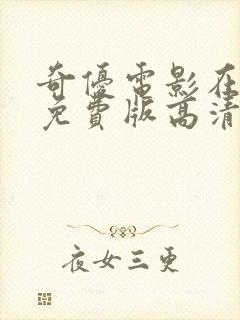 奇優電影在
免費版高清
夜女三更